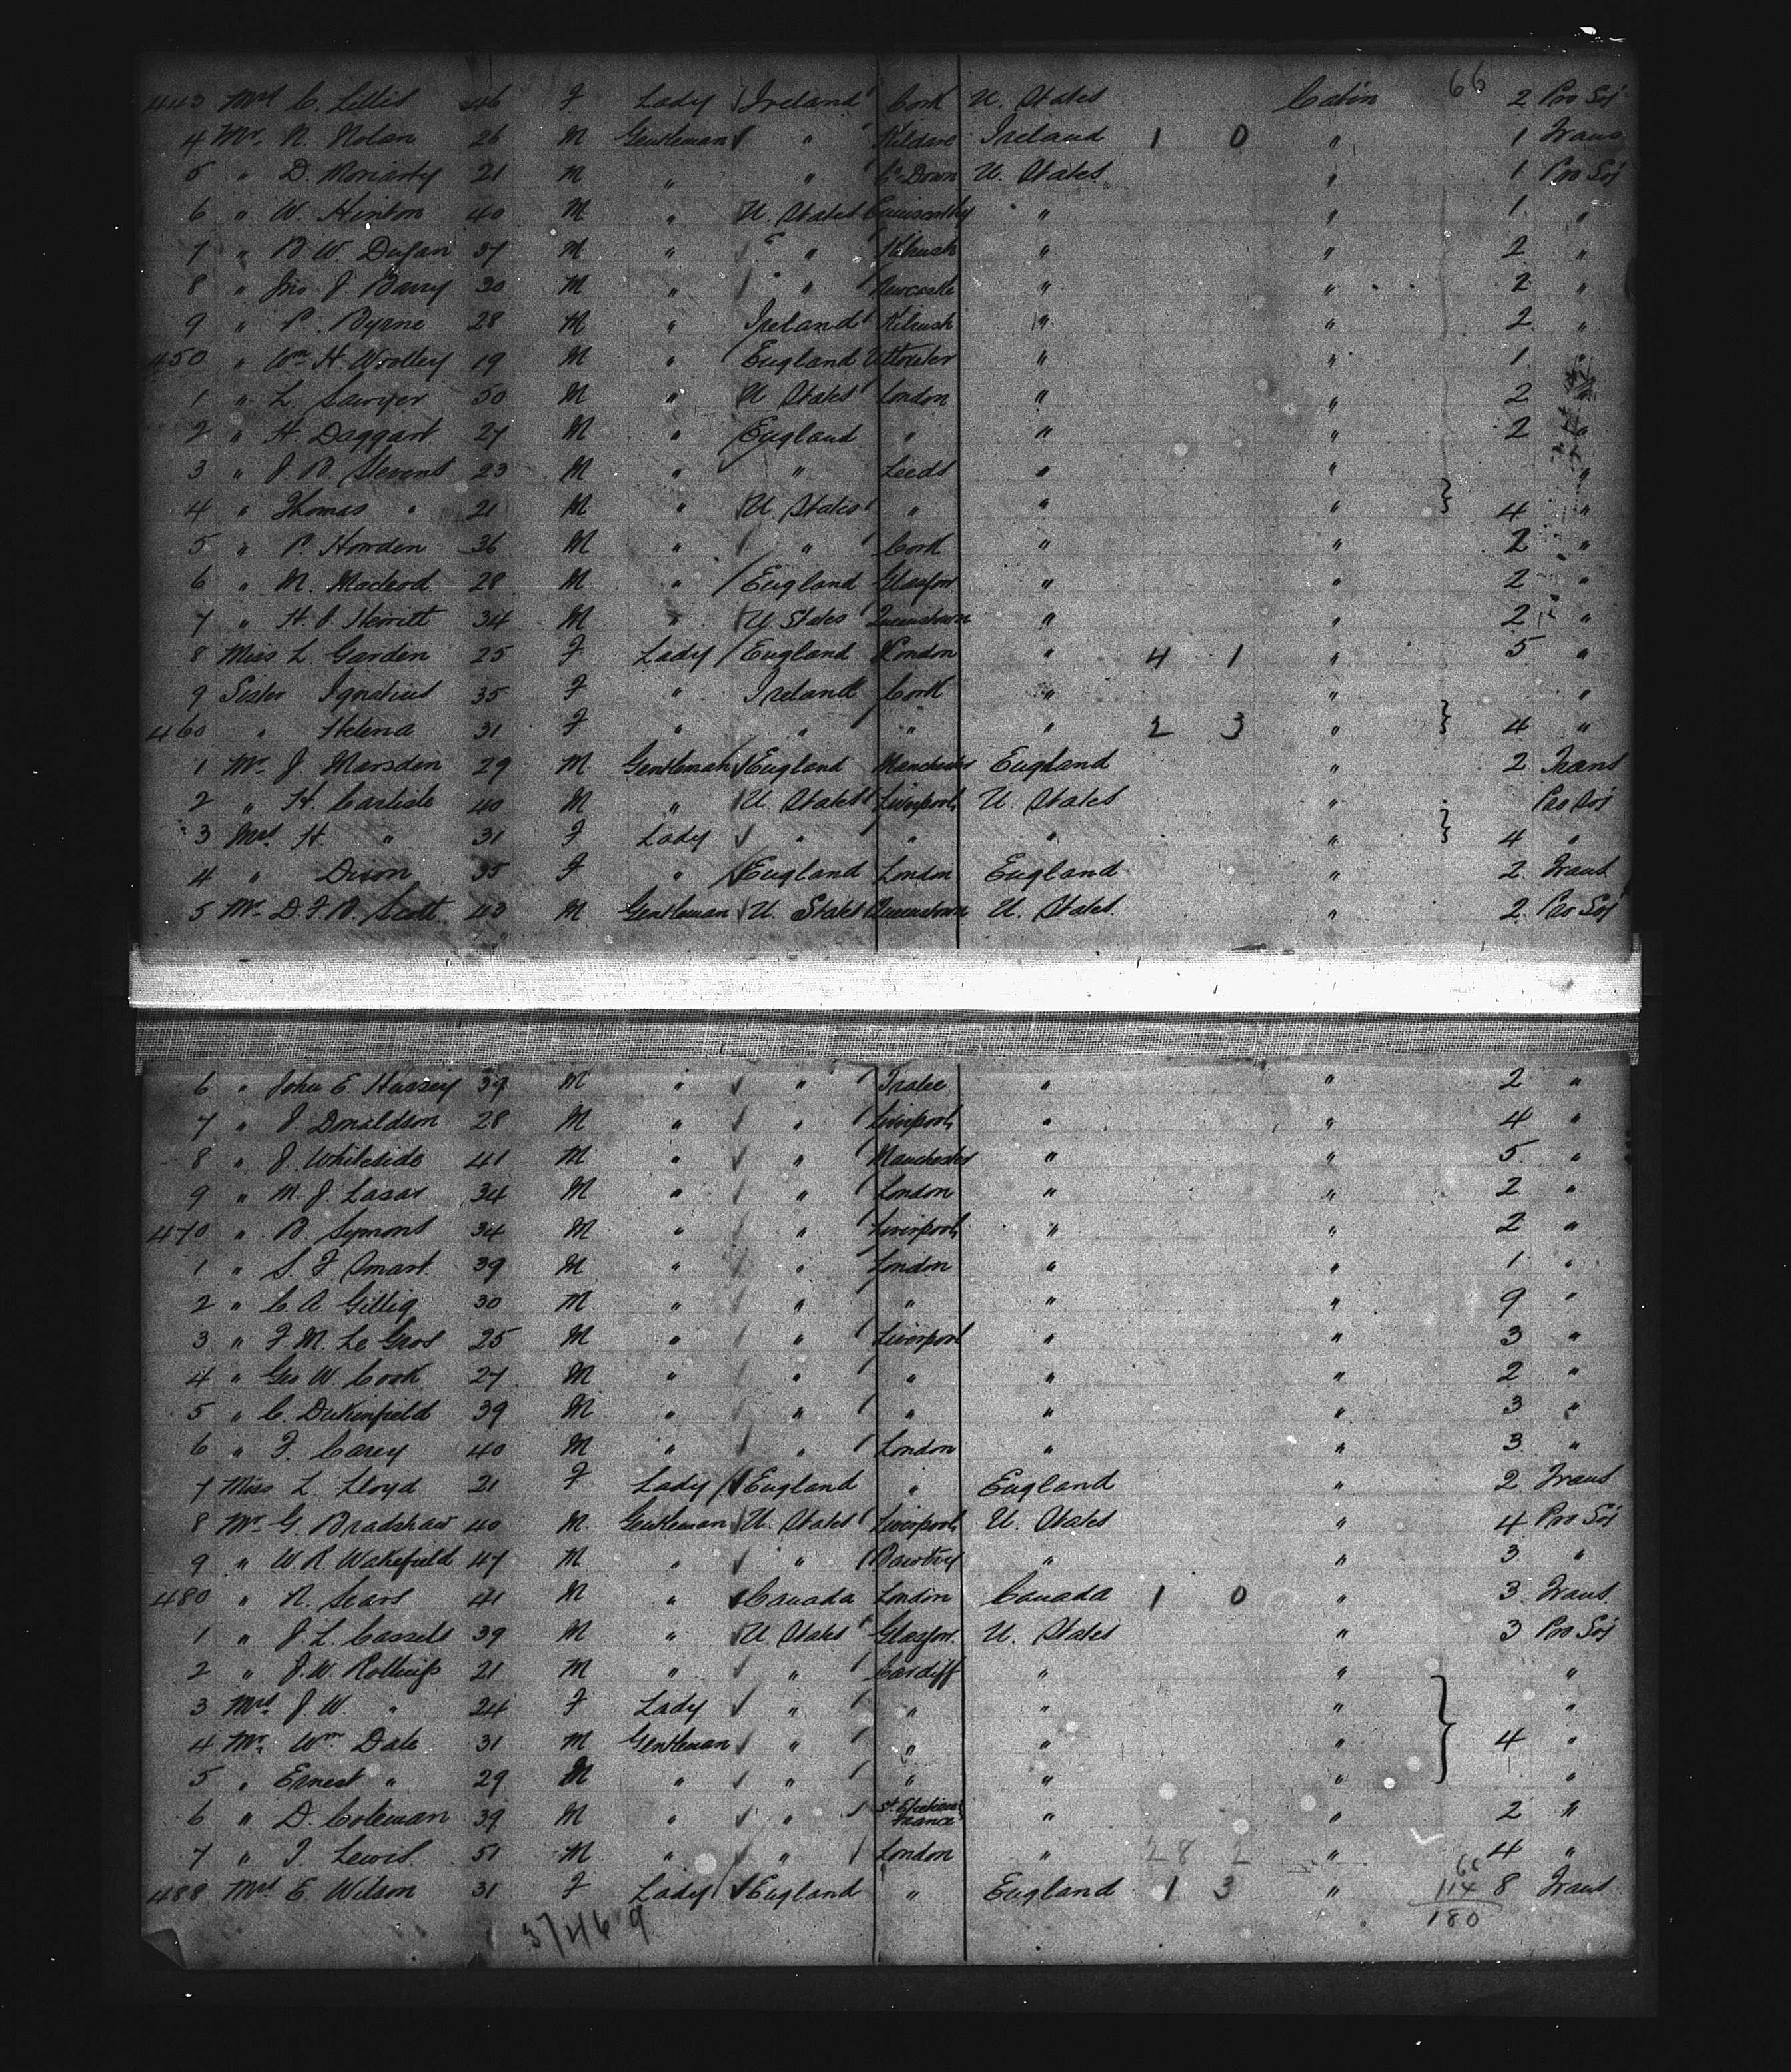 66
443 Mrs C. Lillis 46 F Lady Ireland Cork U. States Cabin 2 Pro Soj
4 Mr. N. Nolan 26 M Gentleman " Kildare Ireland 1 0 " 1 Trans
5 " D. Moriarty 21 M " " Co Down U. States " 1 Pro Soj
6 " W. Hinton 40 M " U. States Enniscorthy " " 1 "
7 " B. W. Dugan 37 M " " Kilrush " " 2 "
8 " Jno J. Barry 30 M " " Newcastle " " 2 "
9 " P. Byrne 28 M " Ireland Kilrush " " 2 "
450 " Wm H. Woolley 19 M " England Uttoxeter " " 1 "
1 " L. Sawyer 50 M " U. States London " " 2 "
2 " H. Daggart 27 M " England " " " 2 "
3 " J. B. Stevens 23 M " " Leeds " " "
4 " Thomas " 21 M " U. States " " " 4 "
5 " P. Howden 36 M " " Cork " " 2 "
6 " N. Macleod 28 M " England Glasgow " " 2 "
7 " H. P. Herritt 34 M " U States Queenstown " " 2 "
8 Miss L. Garden 25 F Lady England London " 4 1 " 5 "
9 Sister Ignatius 35 F " Ireland Cork " " "
460 " Helena 31 F " " " " 2 3 " 4 "
1 Mr. J. Marsden 29 M Gentleman England Manchester England " 2 Trans
2 " H. Carlisle 40 M " U. States Liverpool U. States " Pro Soj
3 Mrs. H. " 31 F Lady " " " " 4 "
4 " Dixon 35 F " England London England " 2 Trans
5 Mr. D. F. B. Scott 43 M Gentleman U. States Queenstown U. States " 2 Pro Soj
6 " John E. Hussey 39 M " " Tralee " " 2 "
7 " J. Donaldson 28 M " " Liverpool " " 4 "
8 " J. Whiteside 41 M " " Manchester " " 5 "
9 " M. J. Lasar 34 M " " London " " 2 "
470 " B. Symons 34 M " " Liverpool " " 2 "
1 " S. F. Smart 39 M " " London " " 1 "
2 " C. A. Gillig 30 M " " " " " 9 "
3 " F. M. Le Gros 25 M " " Liverpool " " 3 "
4 " Geo W. Cook 27 M " " " " " 2 "
5 " C. Dukenfield 39 M " " " " " 3 "
6 " F. Carey 40 M " " London " " 3 "
7 Miss L. Lloyd 21 F Lady England " England " 2 Trans
8 Mr. G. Bradshaw 40 M Gentleman U. States Liverpool U. States " 4 Pro Soj
9 " W. R. Wakefield 47 M " " Bawtry " " 3 "
480 " N. Sears 41 M " Canada London Canada 1 0 " 3 Trans
1 " J. L. Cassels 39 M " U. States Glasgow U. States " 3 Pro Soj
2 " J. W. 21 M " " Cardiff " " "
3 Mrs. J. W. " 24 F Lady " " " " "
4 Mr. Wm. Dale 31 M Gentleman " " " " 4 "
5 " Ernest " 29 M " " " " " "
6 " D. Coleman 39 M " " France " " 2 "
7 " T. Lewis 51 M " " London " 28 2 " 4 "
488 Mrs E. Wilson 31 F Lady England " England 1 3 " 8 Trans
66
114
180